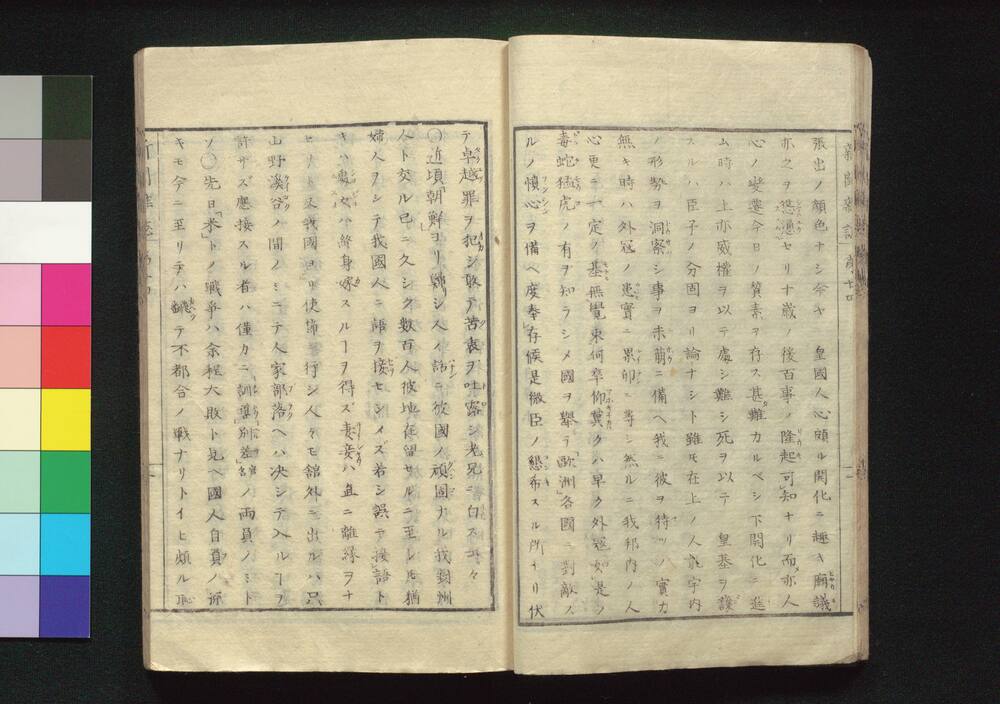 張出ノ顔色ナシ今ヤ 皇國人心頗ル開化ニ趣キ廟議
亦之ヲ慫慂セリ十歳ノ後百事ノ隆起可知ナリ而亦人
心ノ變遷今日ノ質素ヲ存ス甚難カルベシ下開化ニ進
ム時ハ上亦威權ヲ以テ處シ難シ死ヲ以テ 皇基ヲ護
スルハ臣子ノ分固ヨリ論ナシト雖モ在上ノ人能宇内
ノ形勢ヲ洞察シ事ヲ未萠ニ備ヘ我ニ彼ヲ待ツノ實力
無キ時ハ外冦ノ患實ニ累卵ニ等シ然ルニ我邦内ノ人
心更ニ一定ノ基無覺束何卒仰冀クハ早ク外冦如是ノ
毒蛇猛虎ノ有ヲ知ラシメ國ヲ舉テ歐洲各國ニ對敵ノ
ルノ憤心ヲ備ヘ度奉存候是微臣ノ懇布スル所ナリ伏
テ卓越罪ヲ犯シ敢テ苦衷ヲ吐露シ老兄ニ白スコト々
〇近頃朝鮮ヨリ歸シ人ノ話ニ彼國ノ頑固ナル我對州
人ト交ル已ニ久シク數百人彼地在留セルニ至レ𪜈猶
婦人ヲシテ我國人ニ語ヲ接セシメズ若シ誤テ接語ト
キハ處女ハ終身嫁スルヿヲ得ズ妻妾ハ直ニ離縁ヲナ
セリト又我國ヨリ使節行シ人々モ舘外ニ出ルハ只
山野溪谷ノ間ノミニテ人家部落ヘハ决シテ入ルヿヲ
許サズ應接スル者ハ僅カニ訓導別差官名ノ両員ノミト
ソ〇先日米トノ戰爭ハ余程大敗ト見ヘ國人自負ノ
キモ今ニ至リテハ都テ不都合ノ戰ナリトイヒ頗ル恥